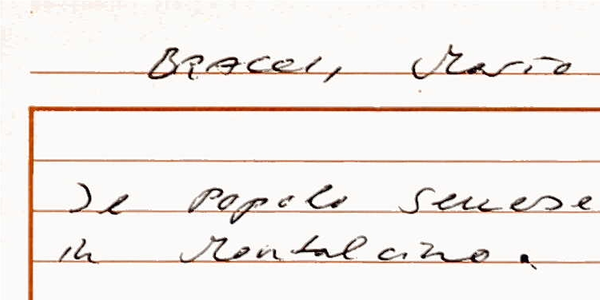 BRACCI, Mario
Il popolo senese
in Montalcino.